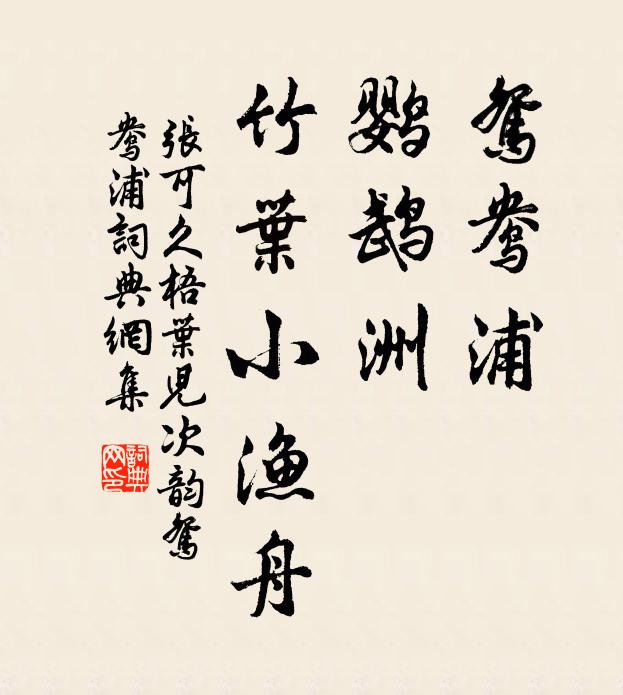 鴛鴦浦
鸚鵡洲
竹葉小漁舟
張可久梧葉兒次韵鴛
鴦浦詞典網集
詞典网印